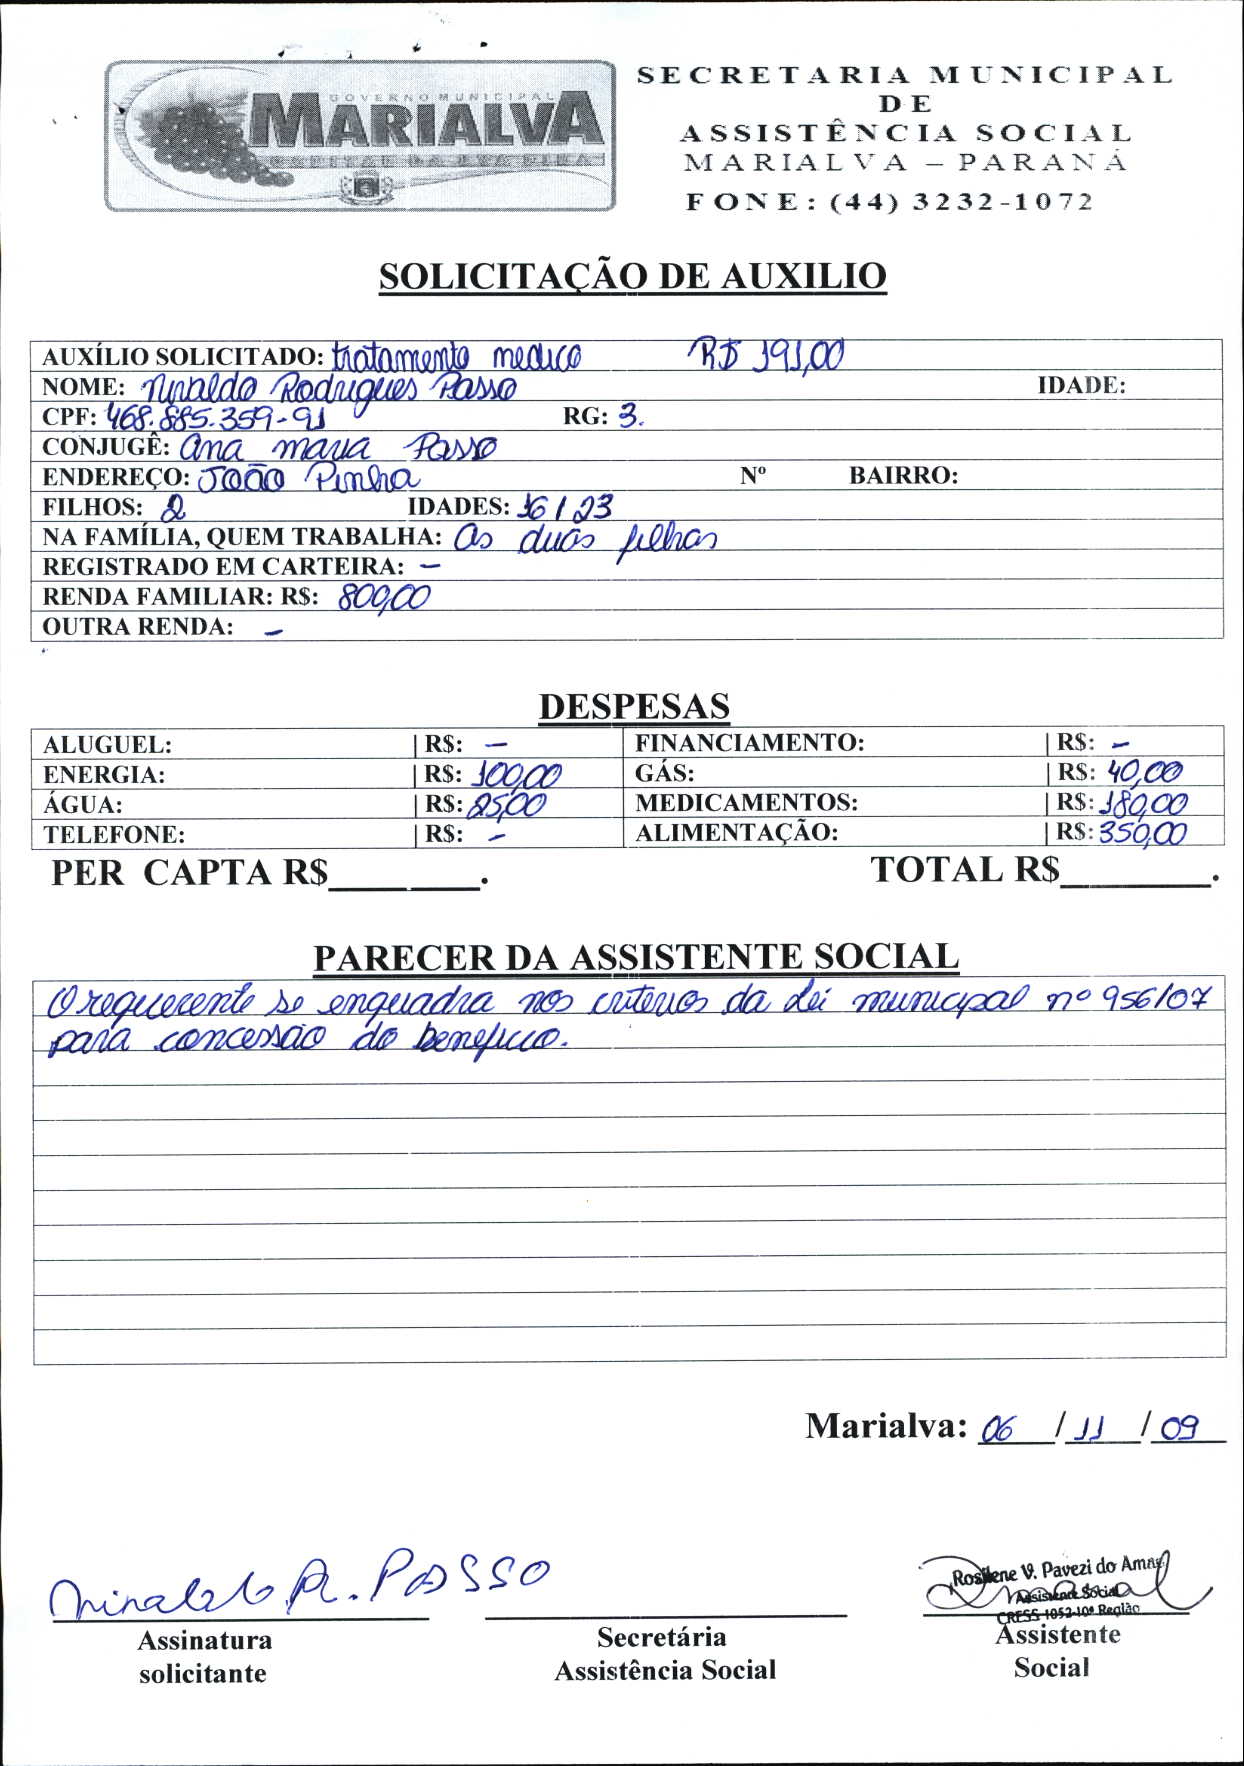 GOVERNO MUNICIPAL
MARIALVA
CAPITAL DA UVA FINA
SECRETARIA MUNICIPAL
DE
ASSISTÊNCIA SOCIAL
MARIALVA – PARANÁ
FONE: (44) 3232-1072
SOLICITAÇÃO DE AUXILIO
AUXÍLIO SOLICITADO: tratamento medico R$ 191,00
NOME: Ninaldo Rodrigues Passo IDADE:
CPF: 468.885.359-91 RG: 3.
CONJUGÊ: Ana maria Passo
ENDEREÇO: João Pinha Nº BAIRRO:
FILHOS: 2 IDADES: 16 / 23
NA FAMÍLIA, QUEM TRABALHA: As duas filhas
REGISTRADO EM CARTEIRA: –
RENDA FAMILIAR: R$: 800,00
OUTRA RENDA: –
DESPESAS
ALUGUEL: | R$: – FINANCIAMENTO: | R$: –
ENERGIA: | R$: 100,00 GÁS: | R$: 40,00
ÁGUA: | R$: 25,00 MEDICAMENTOS: | R$: 180,00
TELEFONE: | R$: – ALIMENTAÇÃO: | R$: 350,00
PER CAPTA R$________. TOTAL R$________.
PARECER DA ASSISTENTE SOCIAL
O requerente se enquadra nos criterios da Lei municipal nº 956/07
para concessão do beneficio.
Marialva: 06 / 11 / 09
Ninaldo R. PASSO
Rosilene V. Pavezi do Amaral
Assistente Social
CRESS 1052-10ª Região
Assinatura Secretária Assistente
solicitante Assistência Social Social